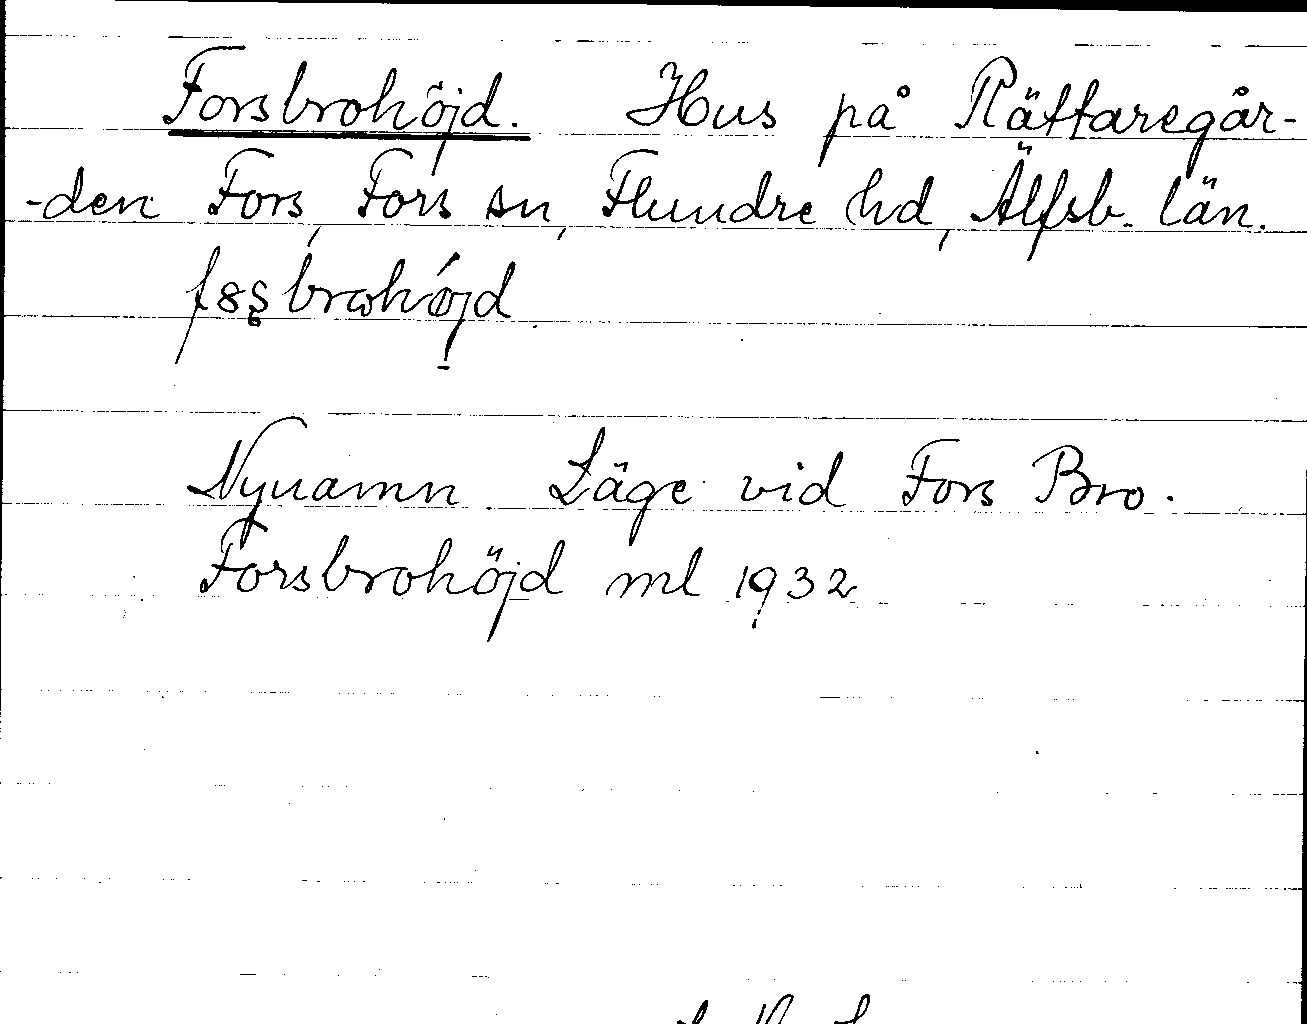 Forsbrohöjd. Hus på Rättaregår-
-den Fors, Fors sn, Flundre hd, Älfsb. län.
Nynamn Läge vid Fors Bro.
Forsbrohöjd ml 1932